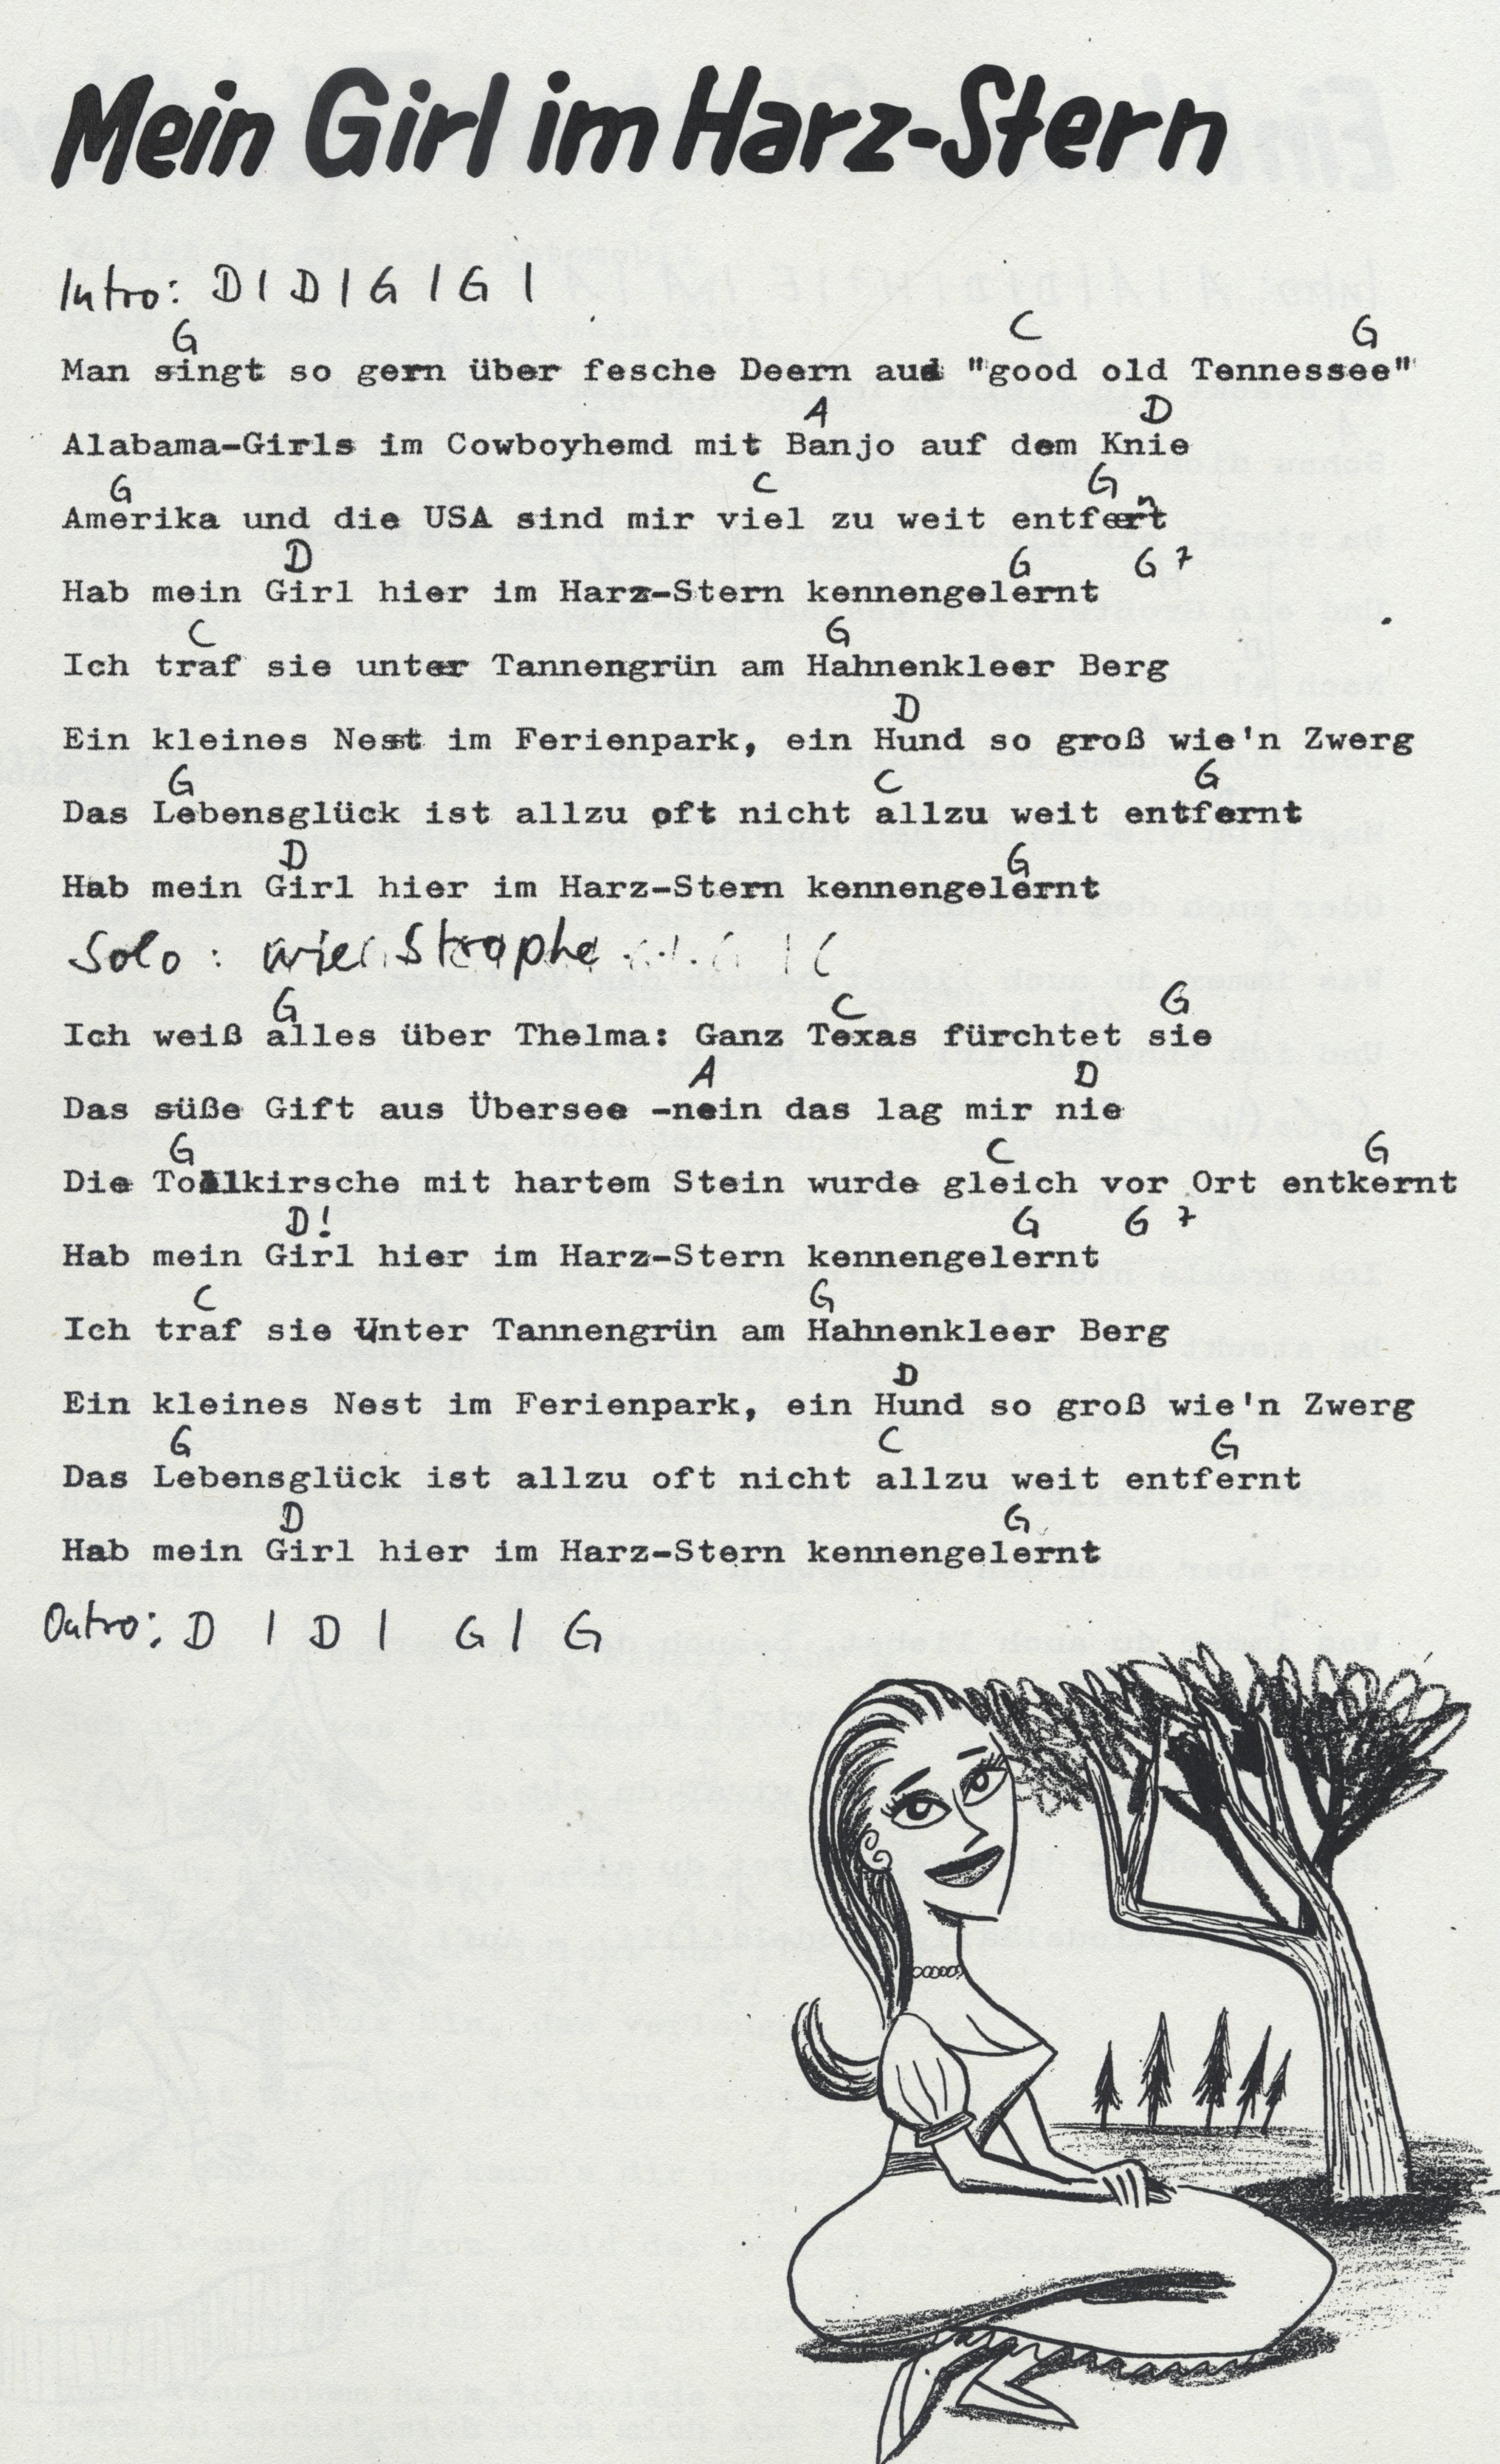 Mein Girl im Harz-Stern
Intro: D | D | G | G |
G C G
Man singt so gern über fesche Deern aus "good old Tennessee"
A D
Alabama-Girls im Cowboyhemd mit Banjo auf dem Knie
G C G
Amerika und die USA sind mir viel zu weit entfernt
D G G7
Hab mein Girl hier im Harz-Stern kennengelernt
C G
Ich traf sie unter Tannengrün am Hahnenkleer Berg
D
Ein kleines Nest im Ferienpark, ein Hund so groß wie'n Zwerg
G C G
Das Lebensglück ist allzu oft nicht allzu weit entfernt
D G
Hab mein Girl hier im Harz-Stern kennengelernt
Solo: wie Strophe
G C G
Ich weiß alles über Thelma: Ganz Texas fürchtet sie
A D
Das süße Gift aus Übersee -nein das lag mir nie
G C G
Die Tollkirsche mit hartem Stein wurde gleich vor Ort entkernt
D! G G7
Hab mein Girl hier im Harz-Stern kennengelernt
C G
Ich traf sie unter Tannengrün am Hahnenkleer Berg
D
Ein kleines Nest im Ferienpark, ein Hund so groß wie'n Zwerg
G C G
Das Lebensglück ist allzu oft nicht allzu weit entfernt
D G
Hab mein Girl hier im Harz-Stern kennengelernt
Outro: D | D | G | G